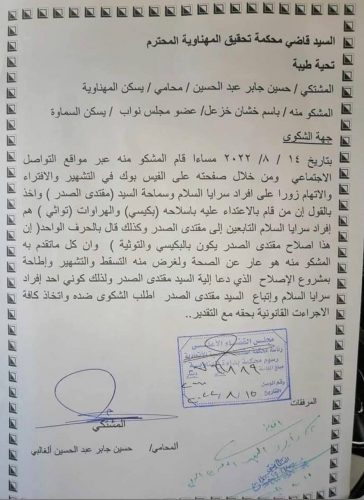 السيد قاضي محكمة تحقيق المهناوية المحترم
تحية طيبة
المشتكي / حسين جابر عبد الحسين / محامي / يسكن المهناوية
المشكو منه / باسم خشان خزعل/ عضو مجلس نواب / يسكن السماوة
جهة الشكوى
بتاريخ ١٤ /٨/ ٢٠٢٢ مساءا قام المشكو منه عبر مواقع التواصل
الاجتماعي ومن خلال صفحته على الفيس بوك في التشهير والافتراء
والاتهام زورا على افراد سرايا السلام وسماحة السيد (مقتدى الصدر) واخذ
بالقول إن من قام بالاعتداء عليه باسلاحه (بكيسي) والهراوات (تواثي) هم
إفراد سرايا السلام التابعين إلى مقتدى الصدر وكذلك قال بالحرف الواحد( إن
هذا اصلاح مقتدى الصدر يكون بالبكيسي والتوثية ) وان كل ماتقدم به
المشكو منه هو عار عن الصحة ولغرض منه التسقط والتشهير وإطاحة
بمشروع الإصلاح الذي دعا إلية السيد مقتدى الصدر ولذلك كوني احد إفراد
سرايا السلام وإتباع السيد مقتدى الصدر اطلب الشكوى ضده واتخاذ كافة
الاجراءت القانونية بحقه مع التقدير..
مجلس القضاء الاعلى
المرفقات
المشتكي
المحامي/ حسين جابر عبد الحسين الغالبي